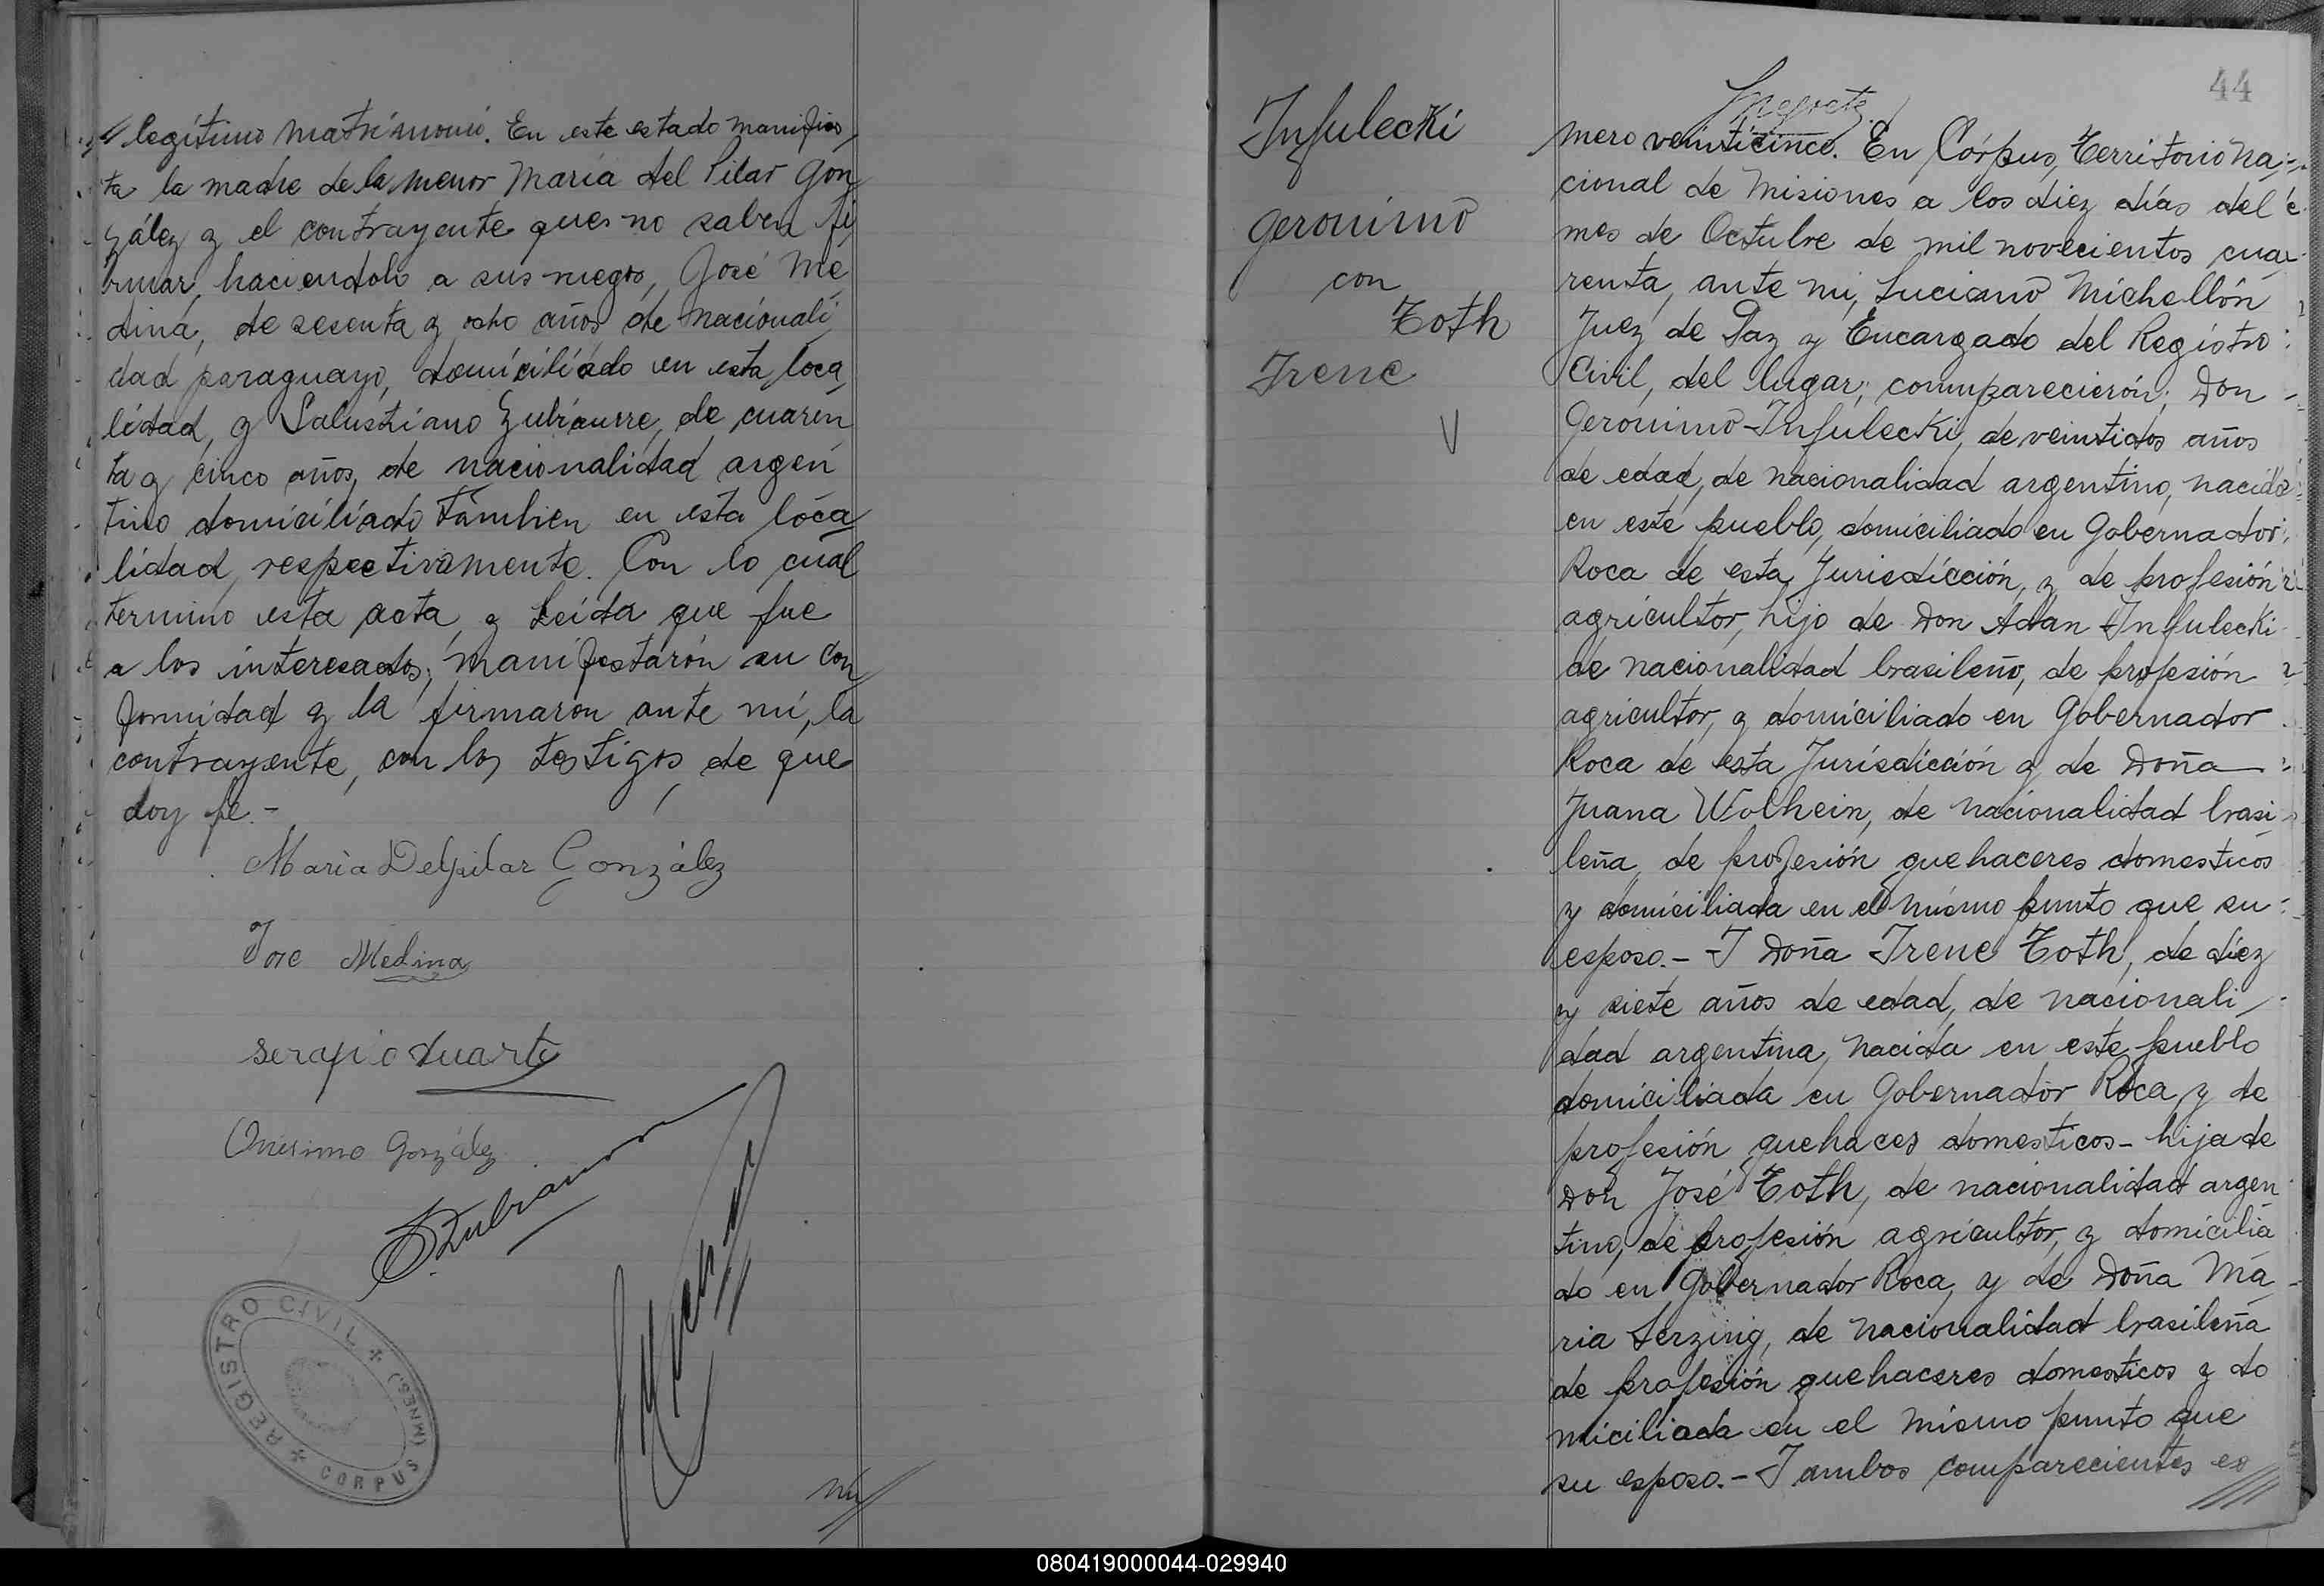 legítimo matrimonio. En este estado manifies
ta la madre de la menor María del Pilar Gon
zález y el contrayente que no saben fi
rmar, haciendolo a sus ruegos, José Me
dina, de sesenta y ocho años de nacionali
dad paraguayo, domiciliado en esta loca
lidad, y Salustiano Zubiaurre, de cuaren
ta y cinco años, de nacionalidad argen
tino, domiciliado tambien en esta loca
lidad, respectivamente. Con lo cual
termino esta acta, y leida que fue
a los interesados, manifestarón su con
formidad y la firmaron ante mí, la
contrayente, con los testigos, de que
doy fe.-
Maria Delpilar González
Jose Medina
Serapio duarte
Onesimo González
SZubiaurre
REGISTRO CIVIL * (MNES) CORPUS *
Nú
44
Infulecki
Geronimo
con
Toth
Irene
V
mero veinticinco. En Córpus, Territorio Na
cional de Misiones a los diez días del
mes de Octubre de mil novecientos cua
renta, ante mi, Luciano Michellón
Juez de Paz y Encargado del Registro
Civil, del lugar; comparecierón; Don
Geronimo Infulecki, de veintidos años
de edad, de nacionalidad argentino, nacido
en este pueblo, domiciliado en Gobernador
Roca de esta Jurisdicción, y de profesión
agricultor, hijo de Don Adan Infulecki
de nacionalidad brasileño, de profesión
agricultor, y domiciliado en Gobernador
Roca de esta Jurisdicción y de Doña
Juana Wolhein, de nacionalidad brasi
leña, de profesión quehaceres domesticos
y domiciliada en el mismo punto que su
esposo.- I Doña Irene Toth, de diez
y siete años de edad, de nacionali
dad argentina, nacida en este pueblo
domiciliada en Gobernador Roca y de
profesión quehaces domesticos- hija de
Don José Toth, de nacionalidad argen
tino, de profesión agricultor, y domicilia
do en Gobernador Roca, y de Doña Ma
ria Serzing, de nacionalidad brasileña
de profesión quehaceres domesticos y do
miciliada en el mismo punto que
su esposo.- I ambos comparecientes ex
080419000044-029940